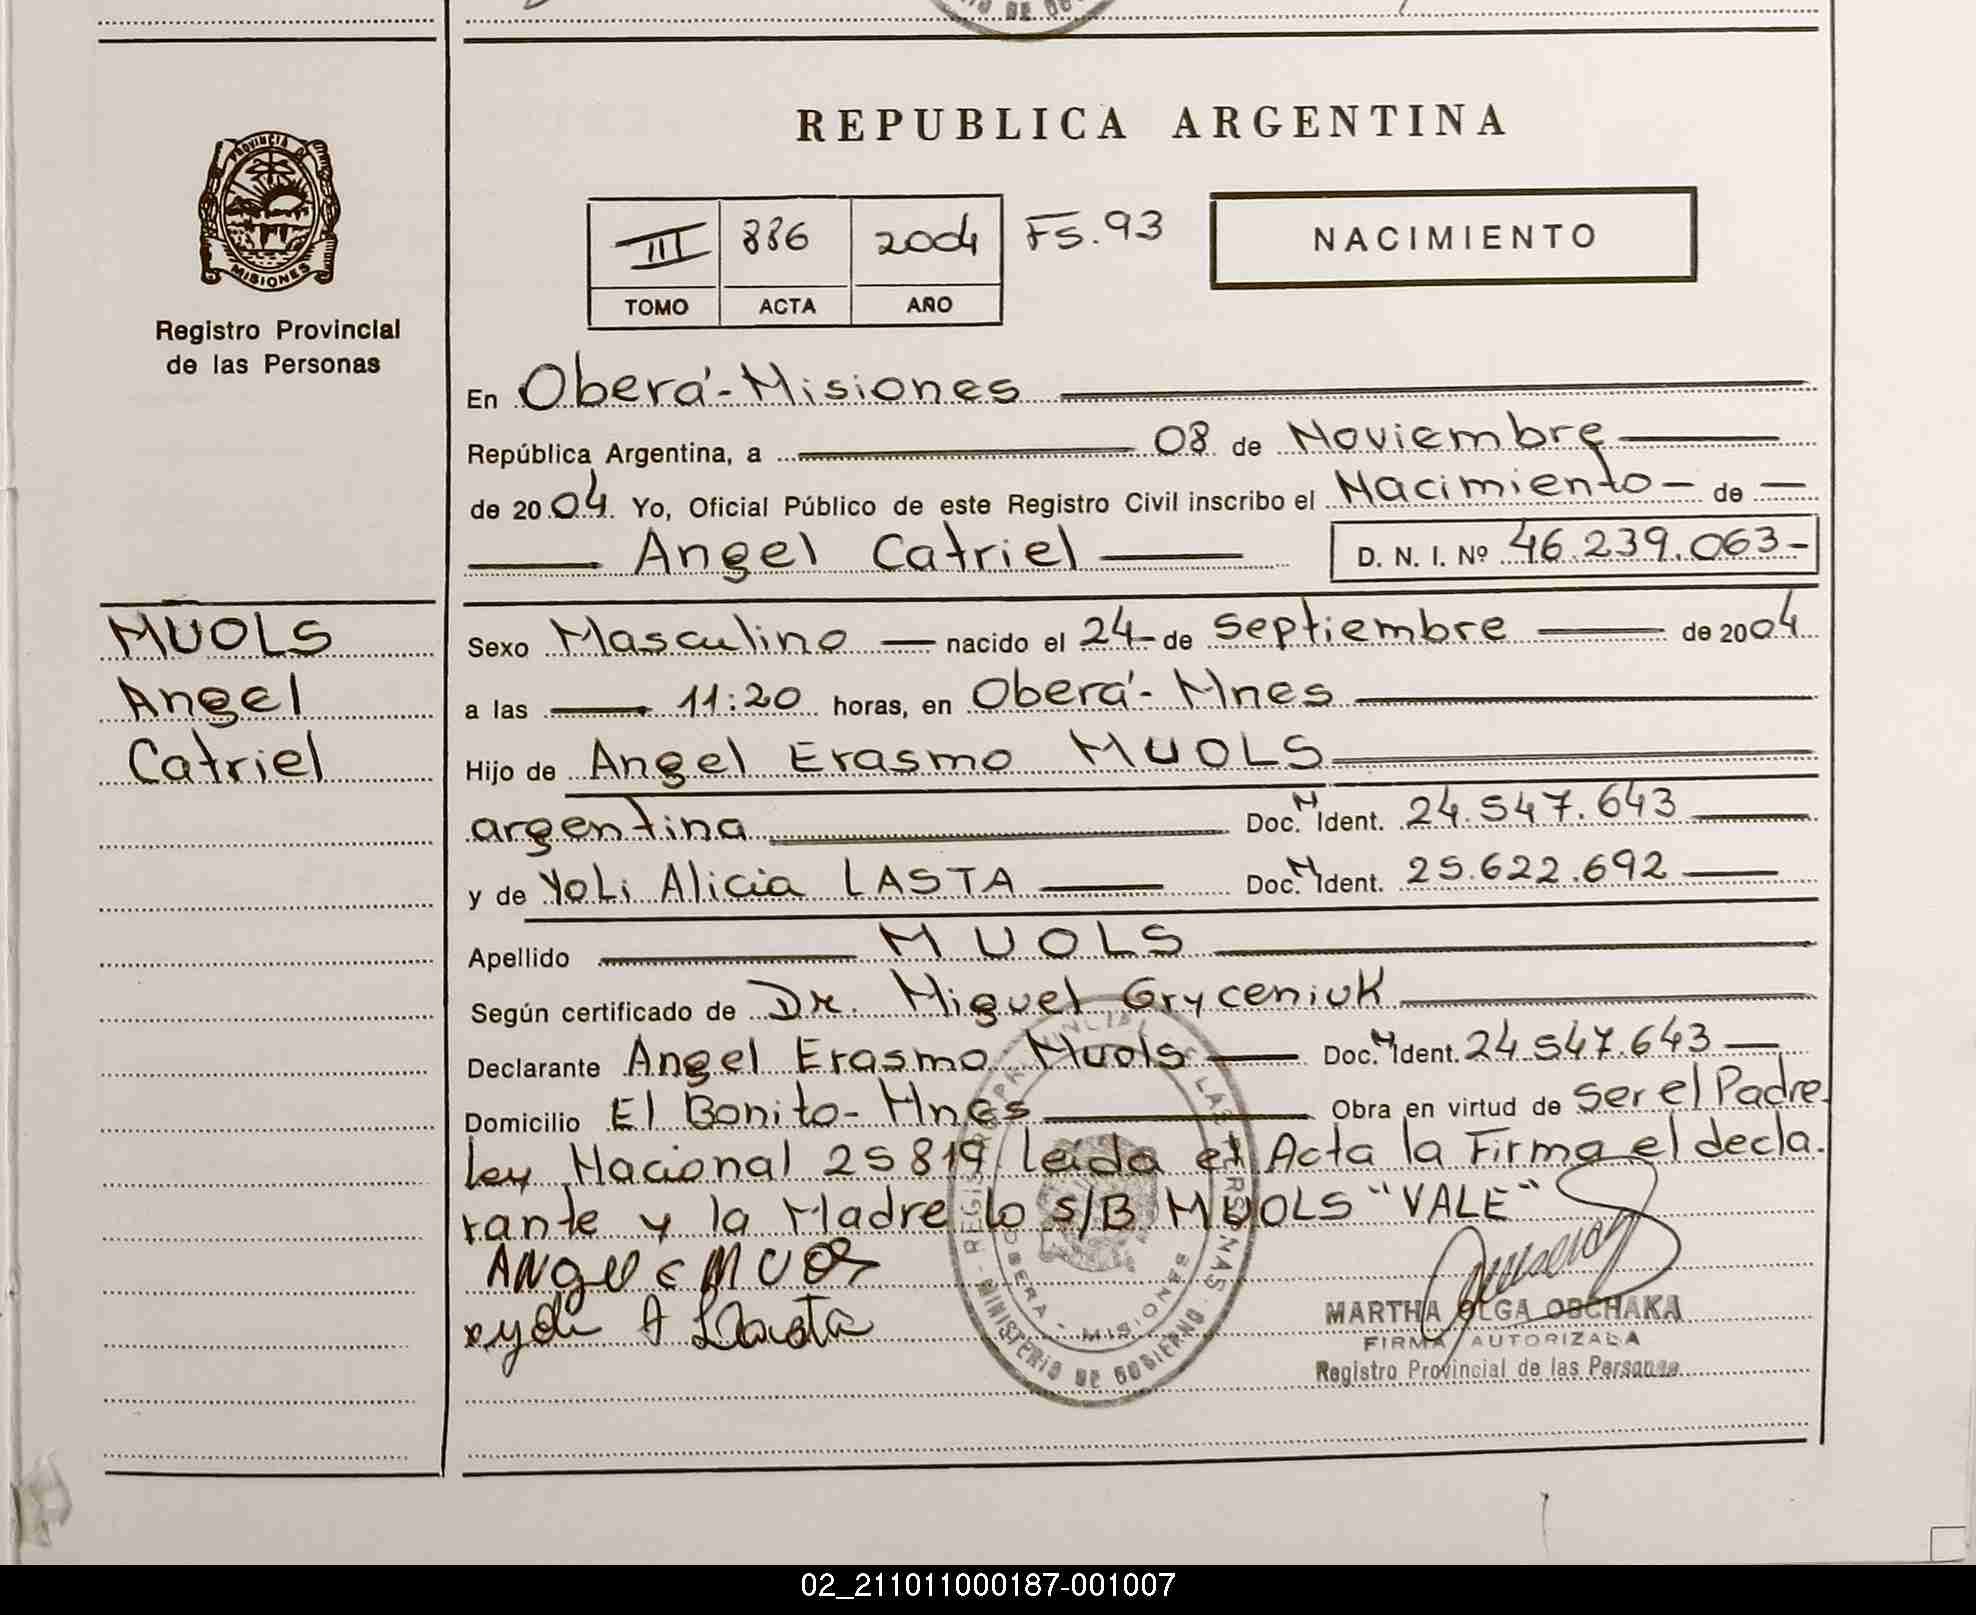 REPUBLICA ARGENTINA
PROVINCIA DE
MISIONES
Registro Provincial
de las Personas
III 886 2004 Fs. 93
TOMO ACTA AÑO
NACIMIENTO
En Oberá-Misiones
República Argentina, a 08 de Noviembre
de 2004 Yo, Oficial Público de este Registro Civil inscribo el Nacimiento - de
Angel Catriel D. N. I. Nº 46.239.063-
MUOLS
Angel
Catriel
Sexo Masculino nacido el 24 de Septiembre de 2004
a las 11:20 horas, en Oberá- Mnes
Hijo de Angel Erasmo MUOLS
argentina Doc. N Ident. 24.547.643
y de Yoli Alicia LASTA Doc. N Ident. 25.622.692
Apellido MUOLS
Según certificado de Dr. Miguel Gryceniuk
Declarante Angel Erasmo Muols Doc. N Ident. 24.547.643
Domicilio El Bonito- Mnes Obra en virtud de Ser el Padre
ley Nacional 25819 leída el Acta la Firma el decla.
rante y la Madre lo s/B MUOLS "VALE"
ANgel E MUOLS
A Lasta
REGISTRO PROVINCIAL DE LAS PERSONAS
OBERA - MISIONES
MINISTERIO DE GOBIERNO
MARTHA OLGA OBCHAKA
FIRMA AUTORIZADA
Registro Provincial de las Personas
02_211011000187-001007